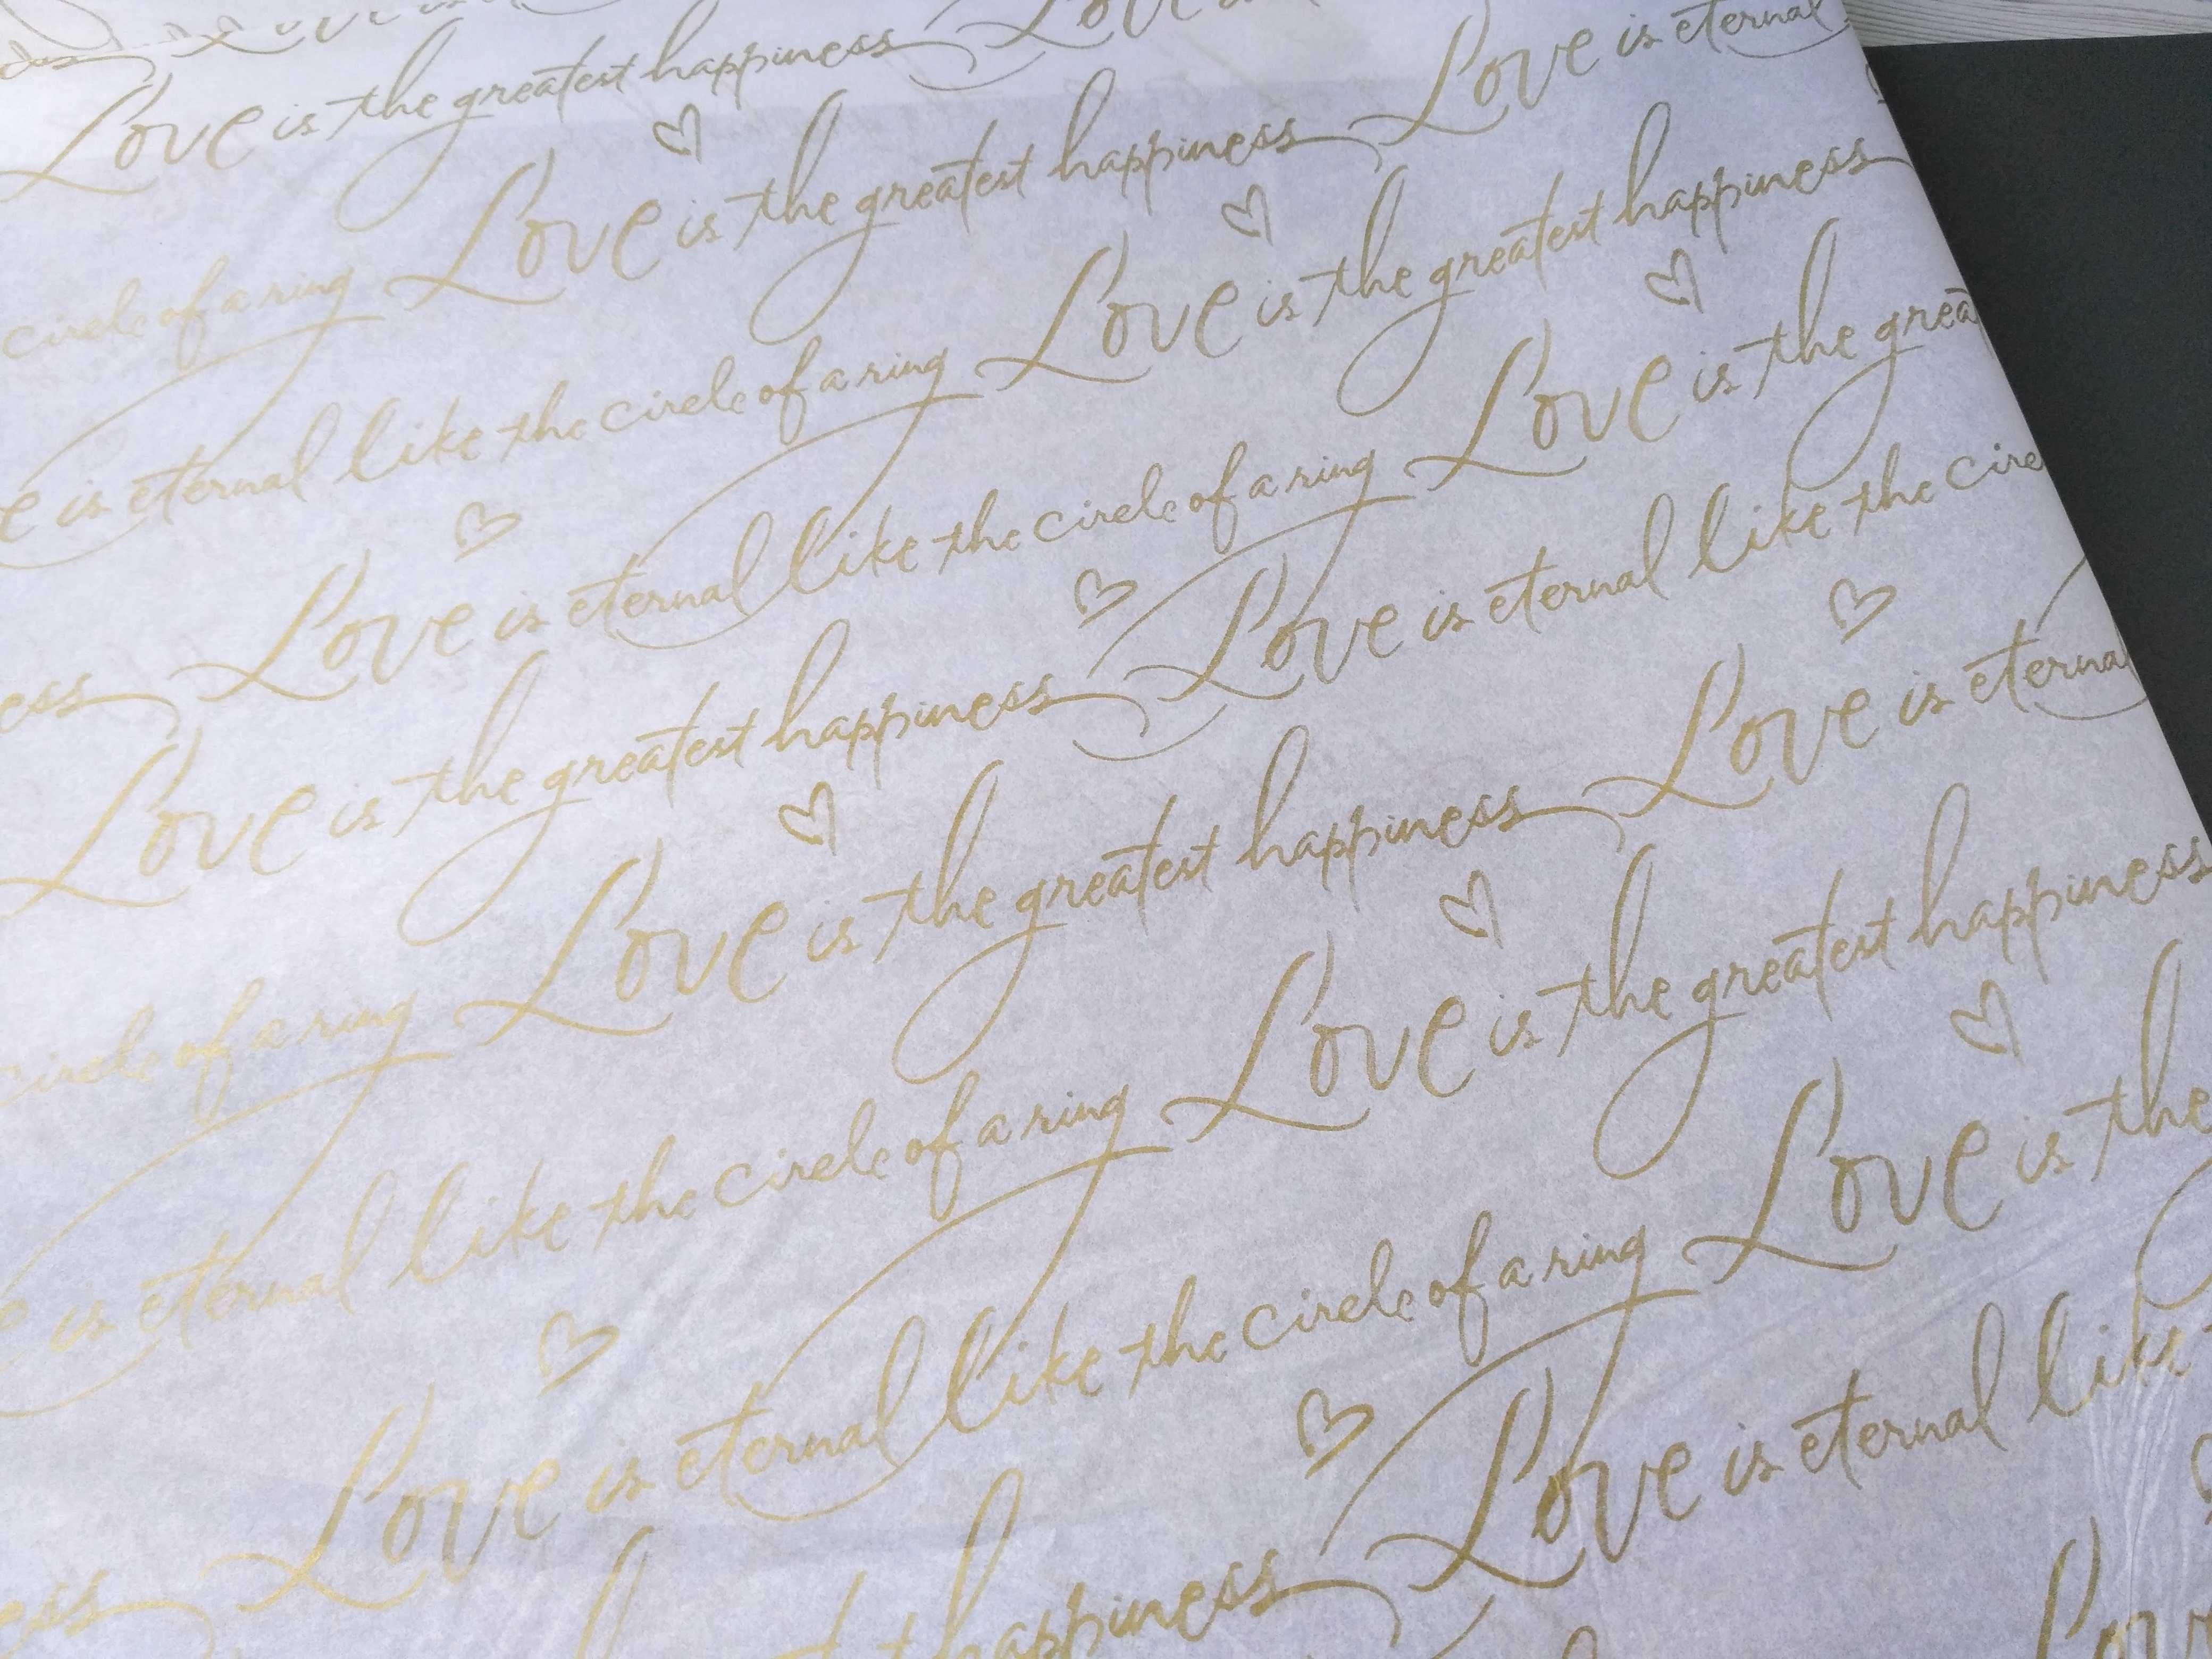 Love is the greatest happiness Love
Love is the greatest happiness Love is eternal
circle of a ring Love is the greatest happiness
is eternal like the circle of a ring Love is the
Love is eternal like the circle of a ring
Love is the greatest happiness Love is eternal like the
circle of a ring Love is the greatest happiness Love is
is eternal like the circle of a ring Love is the greatest happiness
Love is eternal like the circle of a ring Love is the
happiness Love is eternal like